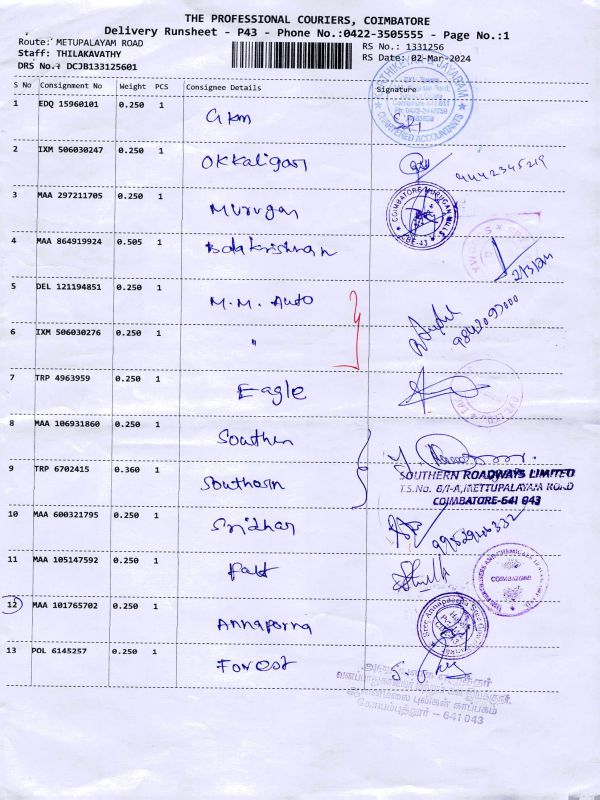 THE PROFESSIONAL COURIERS, COIMBATORE
Delivery Runsheet - P43 - Phone No.:0422-3505555 - Page No.:1
Route: METUPALAYAM ROAD
RS No.: 1331256
Staff: THILAKAVATHY
RS Date: 02-Mar-2024
DRS No.: DCJB133125601
S No Consignment No Weight PCS Consignee Details Signature
1 EDQ 15960101 0.250 1 GKM
CHARTERED ACCOUNTANTS
2 IXM 506030247 0.250 1 Okkaligari
9442345219
3 MAA 297211705 0.250 1 Murugan
COIMBATORE MURUGAN MILLS
CBE-43
4 MAA 864919924 0.505 1 Balakrishnan
5 DEL 121194851 0.250 1 M.M. Auto
6 IXM 506030276 0.250 1 "
7 TRP 4963959 0.250 1 Eagle
8 MAA 106931860 0.250 1 Southen
9 TRP 6702415 0.360 1 Southern
SOUTHERN ROADWAYS LIMITED
T.S.No. 6/1-A, METTUPALAYAM ROAD
COIMBATORE-641 043
10 MAA 600321795 0.250 1 Sridhar
11 MAA 105147592 0.250 1
COIMBATORE
12 MAA 101765702 0.250 1 Annaporna
13 POL 6145257 0.250 1 Forest
ஆனைமலை புலிகள் காப்பகம்
கோயம்புத்தூர் – 641 043